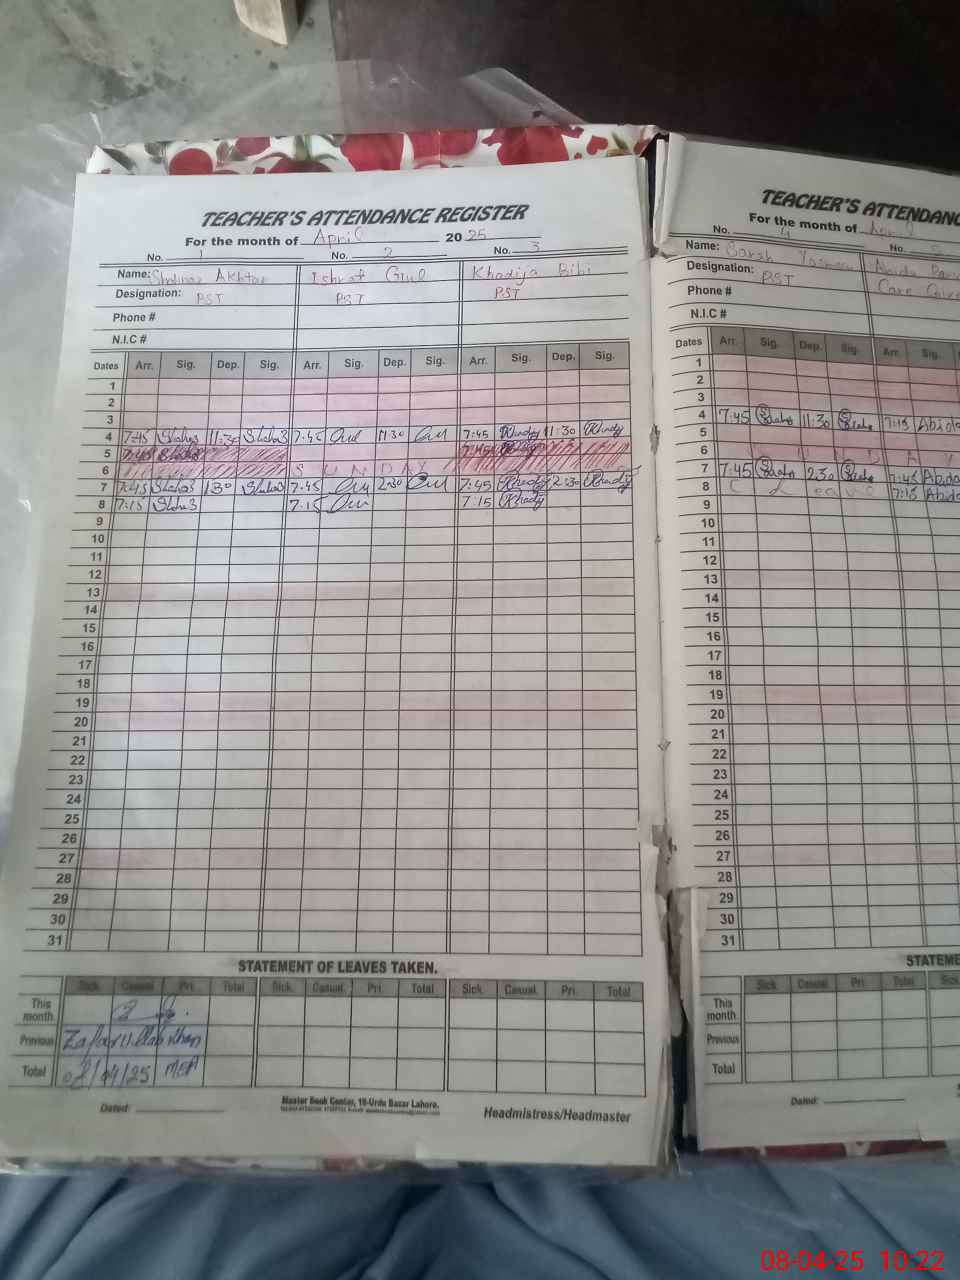 TEACHER'S ATTENDANCE REGISTER
For the month of April 2025
No. 1 No. 2 No. 3
Name: Shahnaz Akhtar Ishrat Gul Khadija Bibi
Designation: PST PST PST
Phone #
N.I.C #
Dates Arr. Sig. Dep. Sig. Arr. Sig. Dep. Sig. Arr. Sig. Dep. Sig.
1
2
3
4 7:45 11:30 7:45 11:30 7:45 11:30
5 7:45 7:45
6 SUNDAY
7 7:45 1:30 7:45 2:30 7:45 2:30
8 7:15 7:15 7:15
9
10
11
12
13
14
15
16
17
18
19
20
21
22
23
24
25
26
27
28
29
30
31
STATEMENT OF LEAVES TAKEN.
Sick. Casual Pri. Total Sick. Casual. Pri. Total Sick. Casual. Pri. Total
This month.
Previous Zafar Ullah Khan
Total 08/04/25 MEA
Dated:
Master Book Center, 18-Urdu Bazar Lahore.
Headmistress/Headmaster
TEACHER'S ATTENDANC
For the month of
No. 4 No. 5
Name: Sarah Yasmeen Abida
Designation: PST Care
Phone #
N.I.C #
Dates Arr. Sig. Dep. Sig. Arr. Sig.
1
2
3
4 7:45 11:30 7:45 Abida
5
6
7 7:45 2:30 7:45 Abida
8 C Leave 7:15 Abida
9
10
11
12
13
14
15
16
17
18
19
20
21
22
23
24
25
26
27
28
29
30
31
STATEME
Sick. Casual Pri. Total
This month.
Previous
Total
Dated:
08-04-25 10:22